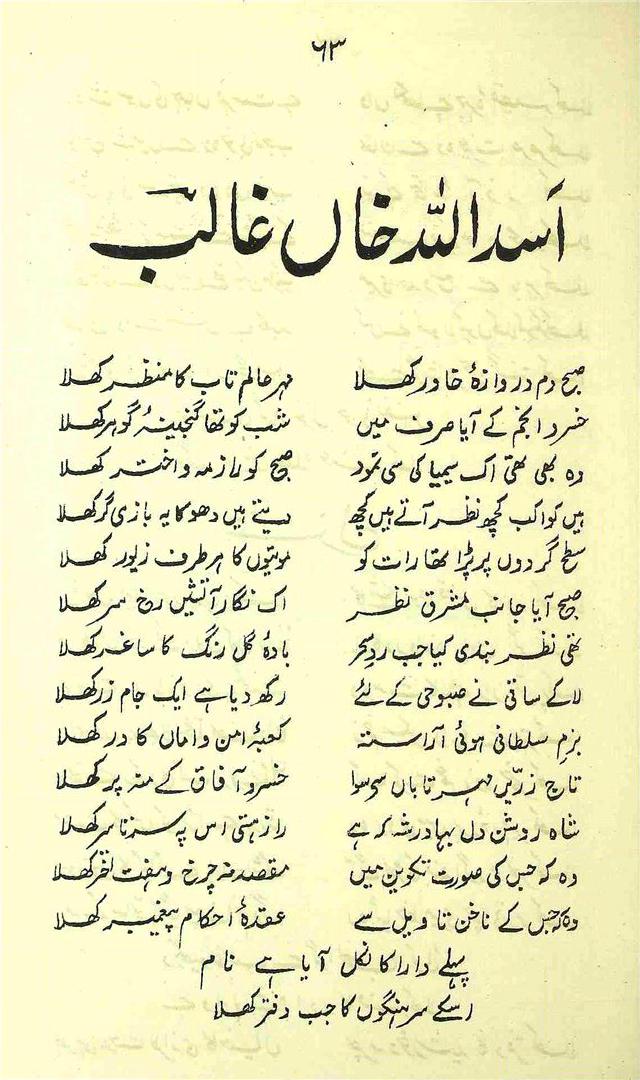 ۶۳
اسداللہ خاں غالب
صبح دم دروازۂ خاور کھلا مہر عالم تاب کا منظر کھلا
خسرو انجم کے آیا صرف میں شب کو تھا گنجینۂ گوہر کھلا
وہ بھی تھی اک سیمیا کی سی نمود صبح کو راز مہ و اختر کھلا
ہیں کواکب کچھ نظر آتے ہیں کچھ دیتے ہیں دھوکا یہ بازی گر کھلا
سطح گردوں پر پڑا تھا رات کو موتیوں کا ہر طرف زیور کھلا
صبح آیا جانب مشرق نظر اک نگار آتشیں رخ سر کھلا
تھی نظر بندی کیا جب رد سحر بادۂ گل رنگ کا ساغر کھلا
لاکے ساقی نے صبوحی کے لئے رکھ دیا ہے ایک جام زر کھلا
بزم سلطانی ہوئی آراستہ کعبۂ امن و اماں کا در کھلا
تاج زرّیں مہر تاباں سے سوا خسرو آفاق کے منہ پر کھلا
شاہ روشن دل بہادر شہ کہ ہے راز ہستی اس پہ سرتا سر کھلا
وہ کہ جس کی صورت تکوین میں مقصد نہ چرخ و ہفت اختر کھلا
وہ کہ جس کے ناخن تاویل سے عقدۂ احکام پیغمبر کھلا
پہلے دارا کا نکل آیا ہے نام
اسکے سرہنگوں کا جب دفتر کھلا